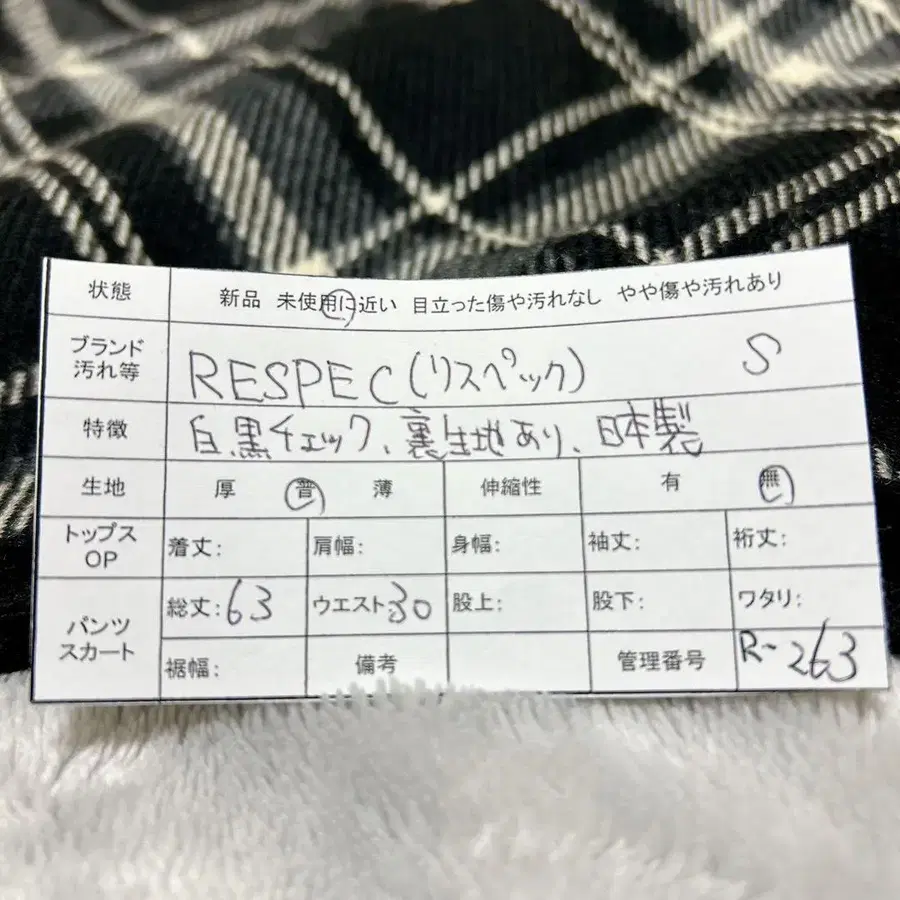 状態 新品 未使用に近い 目立った傷や汚れなし やや傷や汚れあり
ブランド
汚れ等 RESPEC(リスペック) S
特徴 白黒チェック、裏生地あり、日本製
生地 厚 普 薄 伸縮性 有 無
トップス
OP 着丈: 肩幅: 身幅: 袖丈: 裄丈:
パンツ
スカート 総丈:63 ウエスト30 股上: 股下: ワタリ:
裾幅: 備考 管理番号 R-263